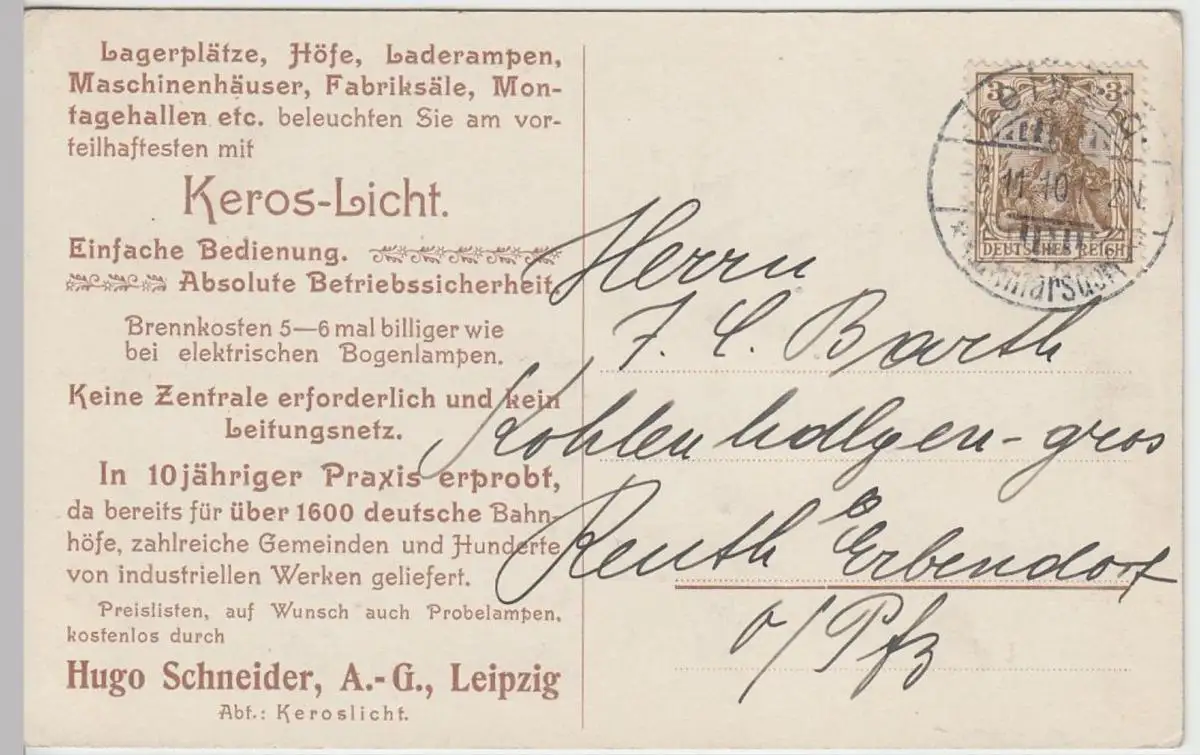 Lagerplätze, Höfe, Laderampen,
Maschinenhäuser, Fabriksäle, Mon-
tagehallen etc. beleuchten Sie am vor-
teilhaftesten mit
Keros-Licht.
Einfache Bedienung.
Absolute Betriebssicherheit.
Brennkosten 5—6 mal billiger wie
bei elektrischen Bogenlampen.
Keine Zentrale erforderlich und kein
Leitungsnetz.
In 10 jähriger Praxis erprobt,
da bereits für über 1600 deutsche Bahn-
höfe, zahlreiche Gemeinden und Hunderte
von industriellen Werken geliefert.
Preislisten, auf Wunsch auch Probelampen,
kostenlos durch
Hugo Schneider, A.-G., Leipzig
Abt.: Keroslicht.
3 3
DEUTSCHES REICH
11 10 2N.
Herrn
J. C. Barth
Kohlenhdlgen-gros
Reuth b Erbendorf
o/Pfz